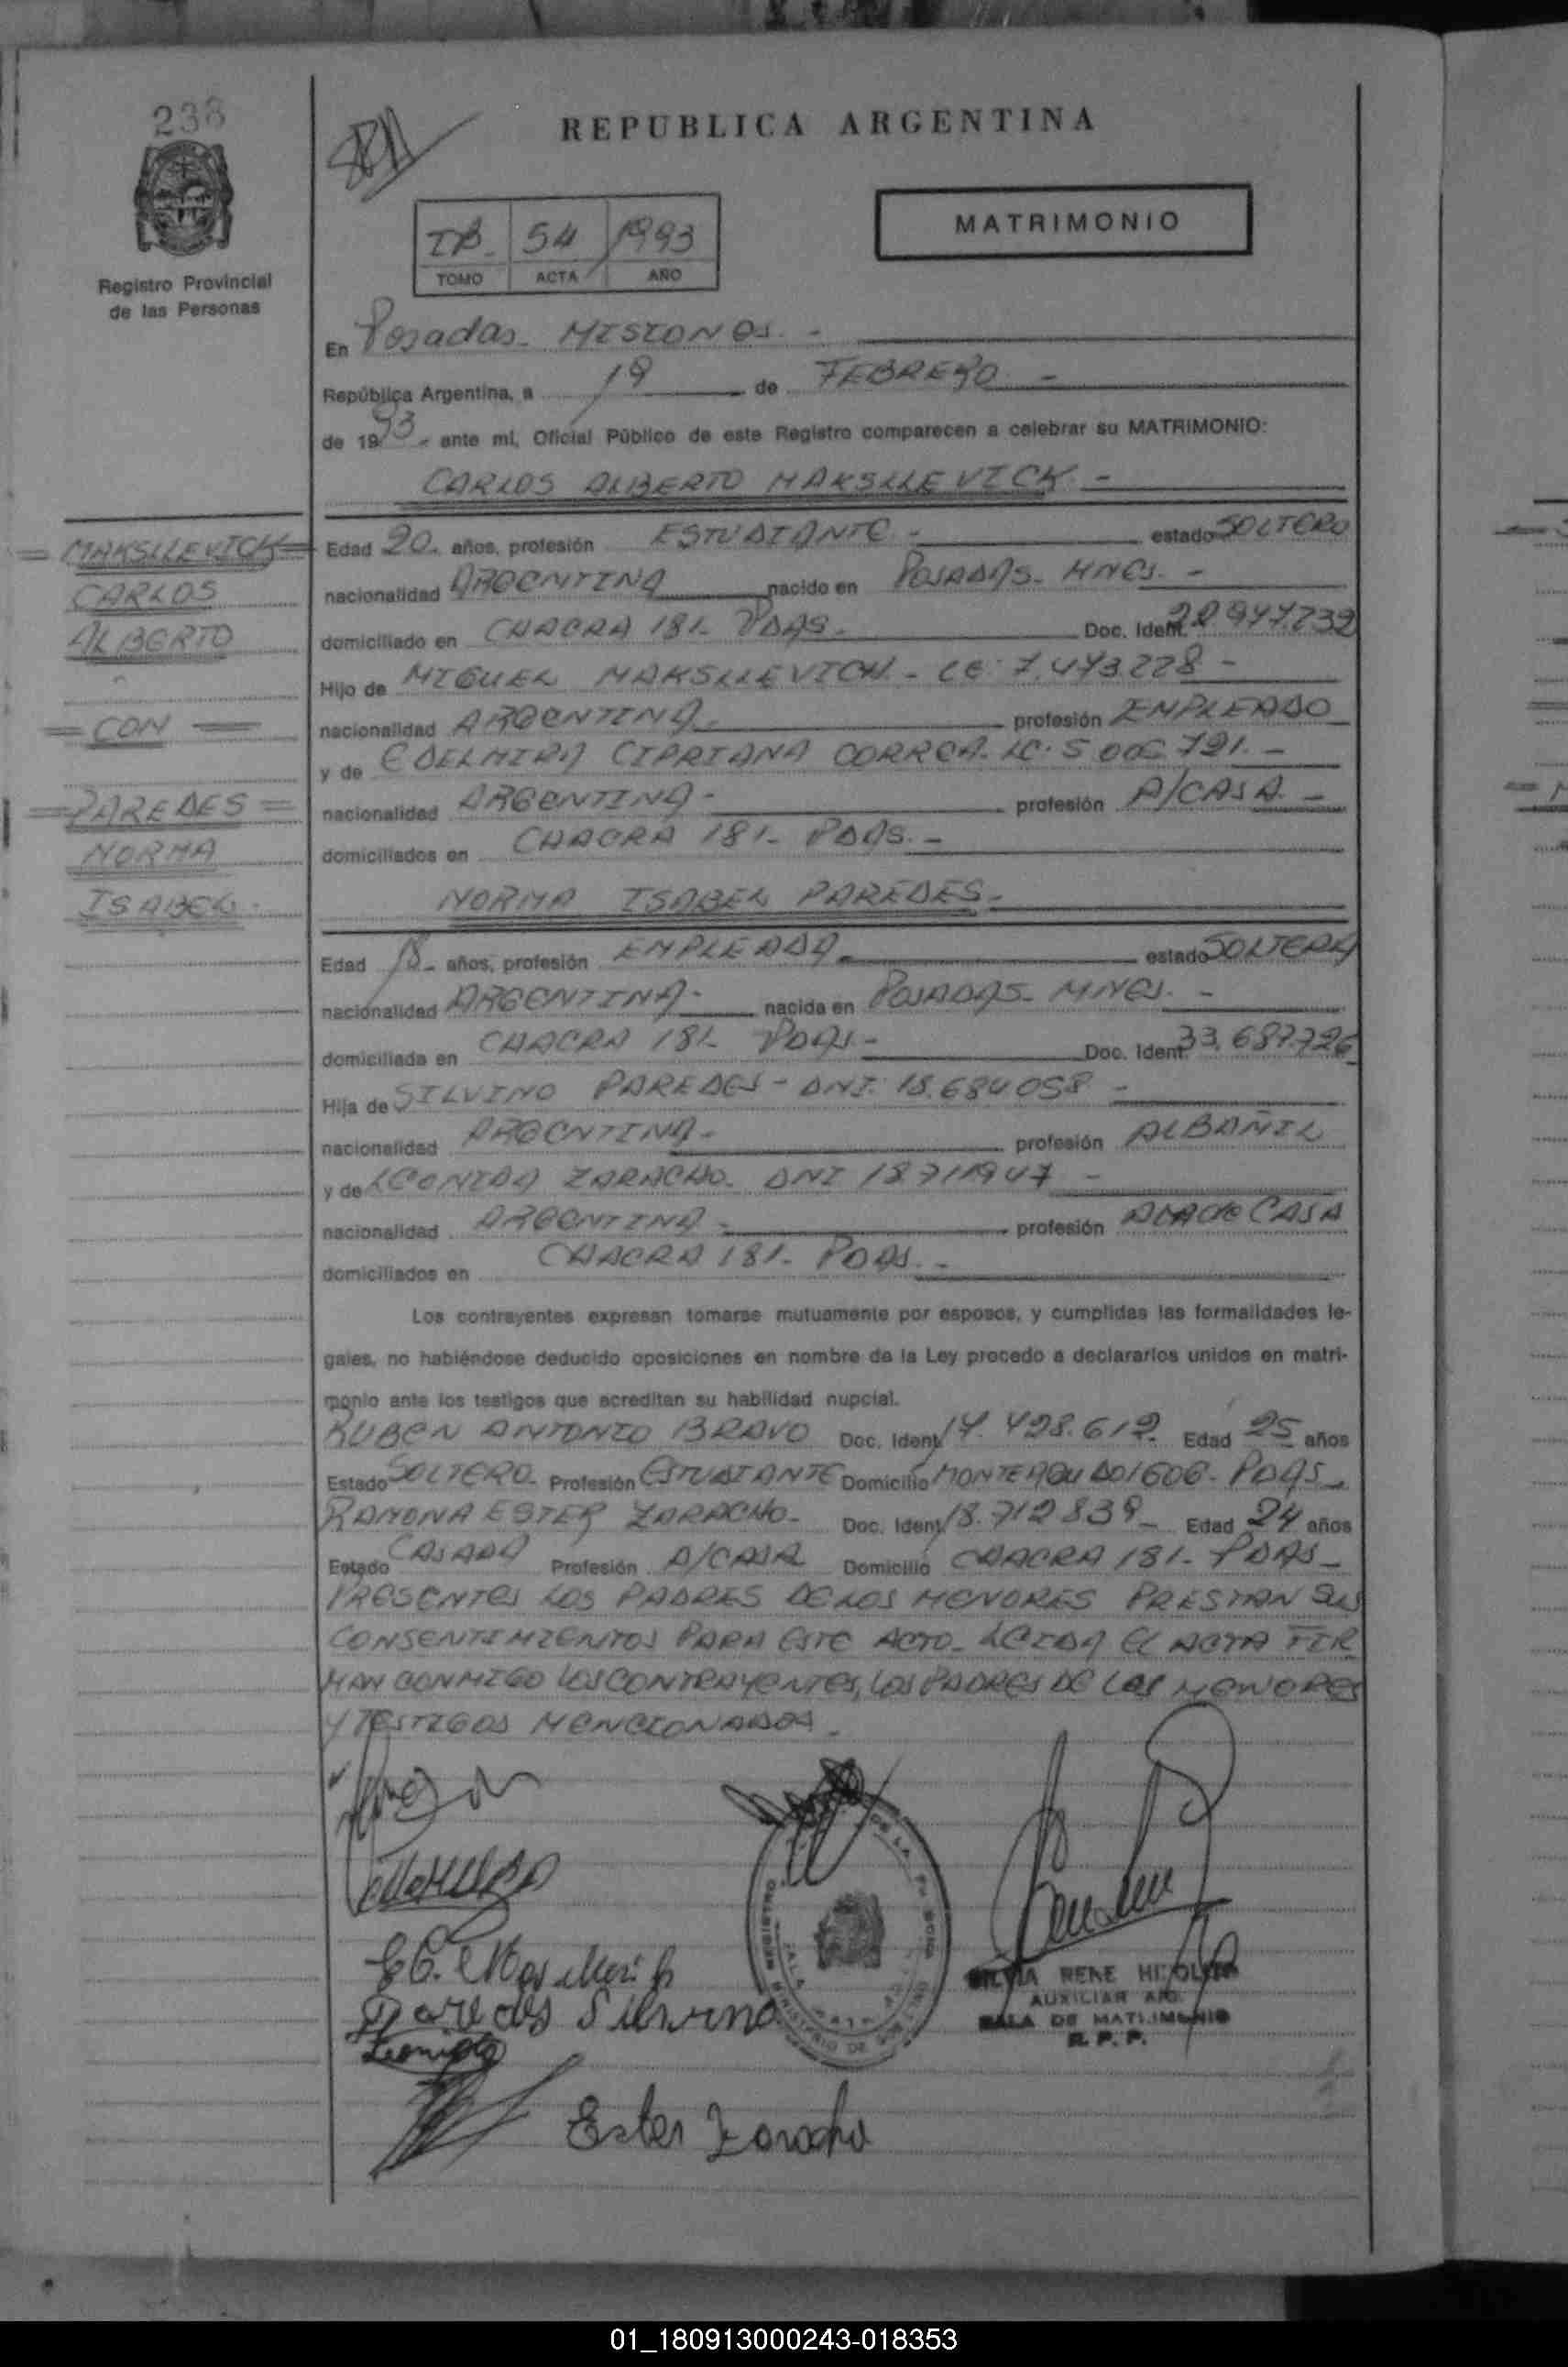 238
REPUBLICA ARGENTINA
54 1993
TOMO ACTA AÑO
MATRIMONIO
Registro Provincial
de las Personas
En Posadas - MISIONES. -
República Argentina, a 19 de FEBRERO -
de 1993 - ante mí, Oficial Público de este Registro comparecen a celebrar su MATRIMONIO:
CARLOS ALBERTO MAKSLLEVICK. -
= MAKSLLEVICK =
CARLOS
ALBERTO
= CON =
= PAREDES =
NORMA
ISABEL.
Edad 20. años, profesión ESTUDIANTE - estado SOLTERO
nacionalidad ARGENTINA nacido en POSADAS - MNES. -
domiciliado en CHACRA 181- PDAS. Doc. Ident. 22 977.732
Hijo de MIGUEL MAKSLLEVICH. - LE: 7.473.228 -
nacionalidad ARGENTINA. profesión EMPLEADO
y de EDELMIRA CIPRIANA CORREA. LC. 5 006 791. -
nacionalidad ARGENTINA - profesión A/CASA. -
domiciliados en CHACRA 181- PDAS. -
NORMA ISABEL PAREDES -
Edad 18 - años, profesión EMPLEADA. estado SOLTERA
nacionalidad ARGENTINA - nacida en POSADAS - MNES. -
domiciliada en CHACRA 181- PDAS - Doc. Ident. 33.687.726
Hija de SILVINO PAREDES - DNI. 18.684 058 -
nacionalidad ARGENTINA - profesión ALBAÑIL
y de LEONIDA ZARACHO - DNI 18 711947 -
nacionalidad ARGENTINA - profesión AMA de CASA
domiciliados en CHACRA 181- PDAS. -
Los contrayentes expresan tomarse mutuamente por esposos, y cumplidas las formalidades le-
gales, no habiéndose deducido oposiciones en nombre de la Ley procedo a declararlos unidos en matri-
monio ante los testigos que acreditan su habilidad nupcial.
RUBEN ANTONIO BRAVO Doc. Ident. 17. 498.612 Edad 25 años
Estado SOLTERO - Profesión ESTUDIANTE Domicilio MONTEAGUDO 1606 - PDAS -
RAMONA ESTER ZARACHO - Doc. Ident. 18.712 839 - Edad 24 años
Estado CASADA Profesión A/CASA Domicilio CHACRA 181- PDAS -
PRESENTES LOS PADRES DE LOS MENORES PRESTAN SUS
CONSENTIMIENTOS PARA ESTE ACTO - LEIDA EL ACTA FIR
MAN CONMIGO LOS CONTRAYENTES, LOS PADRES DE LOS MENORES
Y TESTIGOS MENCIONADOS.
Paredes Silvino
Leonida
Ester Zaracho
SILVIA RENE HIPOLITO
AUXILIAR
SALA DE MATRIMONIO
R. P. P.
01_180913000243-018353